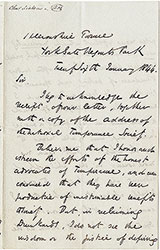 Devonshire Terrace
York Gate Regents Park
Twenty Sixth January 1844.
Sir
I beg to acknowledge the
receipt of your letter, together
with a copy of the address of
the National Temperance Society.
Believe me that I honor and
esteem the efforts of the honest
advocates of Temperance, and am
convinced that they have been
productive of inestimable benefits
But in reclaiming
Drunkards, I do not see the
wisdom or the justice of depriving